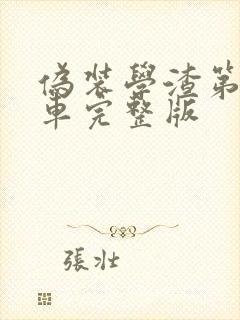 偽裝學渣第
車完整版
張壯